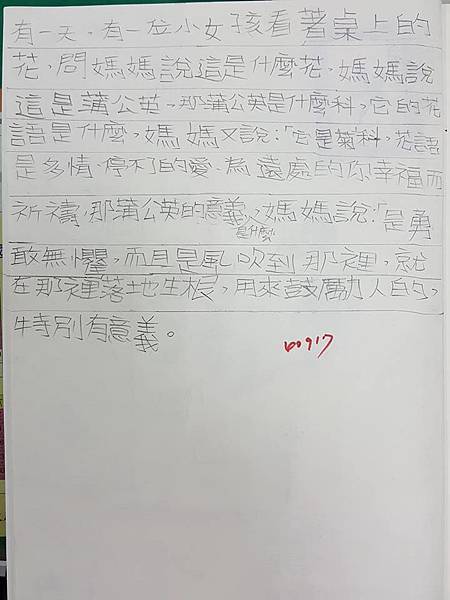 有一天，有一位小女孩看著桌上的
花，問媽媽說這是什麼花，媽媽說
這是蒲公英，那蒲公英是什麼科，它的花
語是什麼，媽媽又說：「它是菊科，花語
是多情、停不了的愛、為遠處的你幸福而
祈禱，那蒲公英的意義是什麼，媽媽說：「是勇
敢無懼，而且是風吹到那裡，就
在那裡落地生根，用來鼓勵人的，
特別有意義。
60917